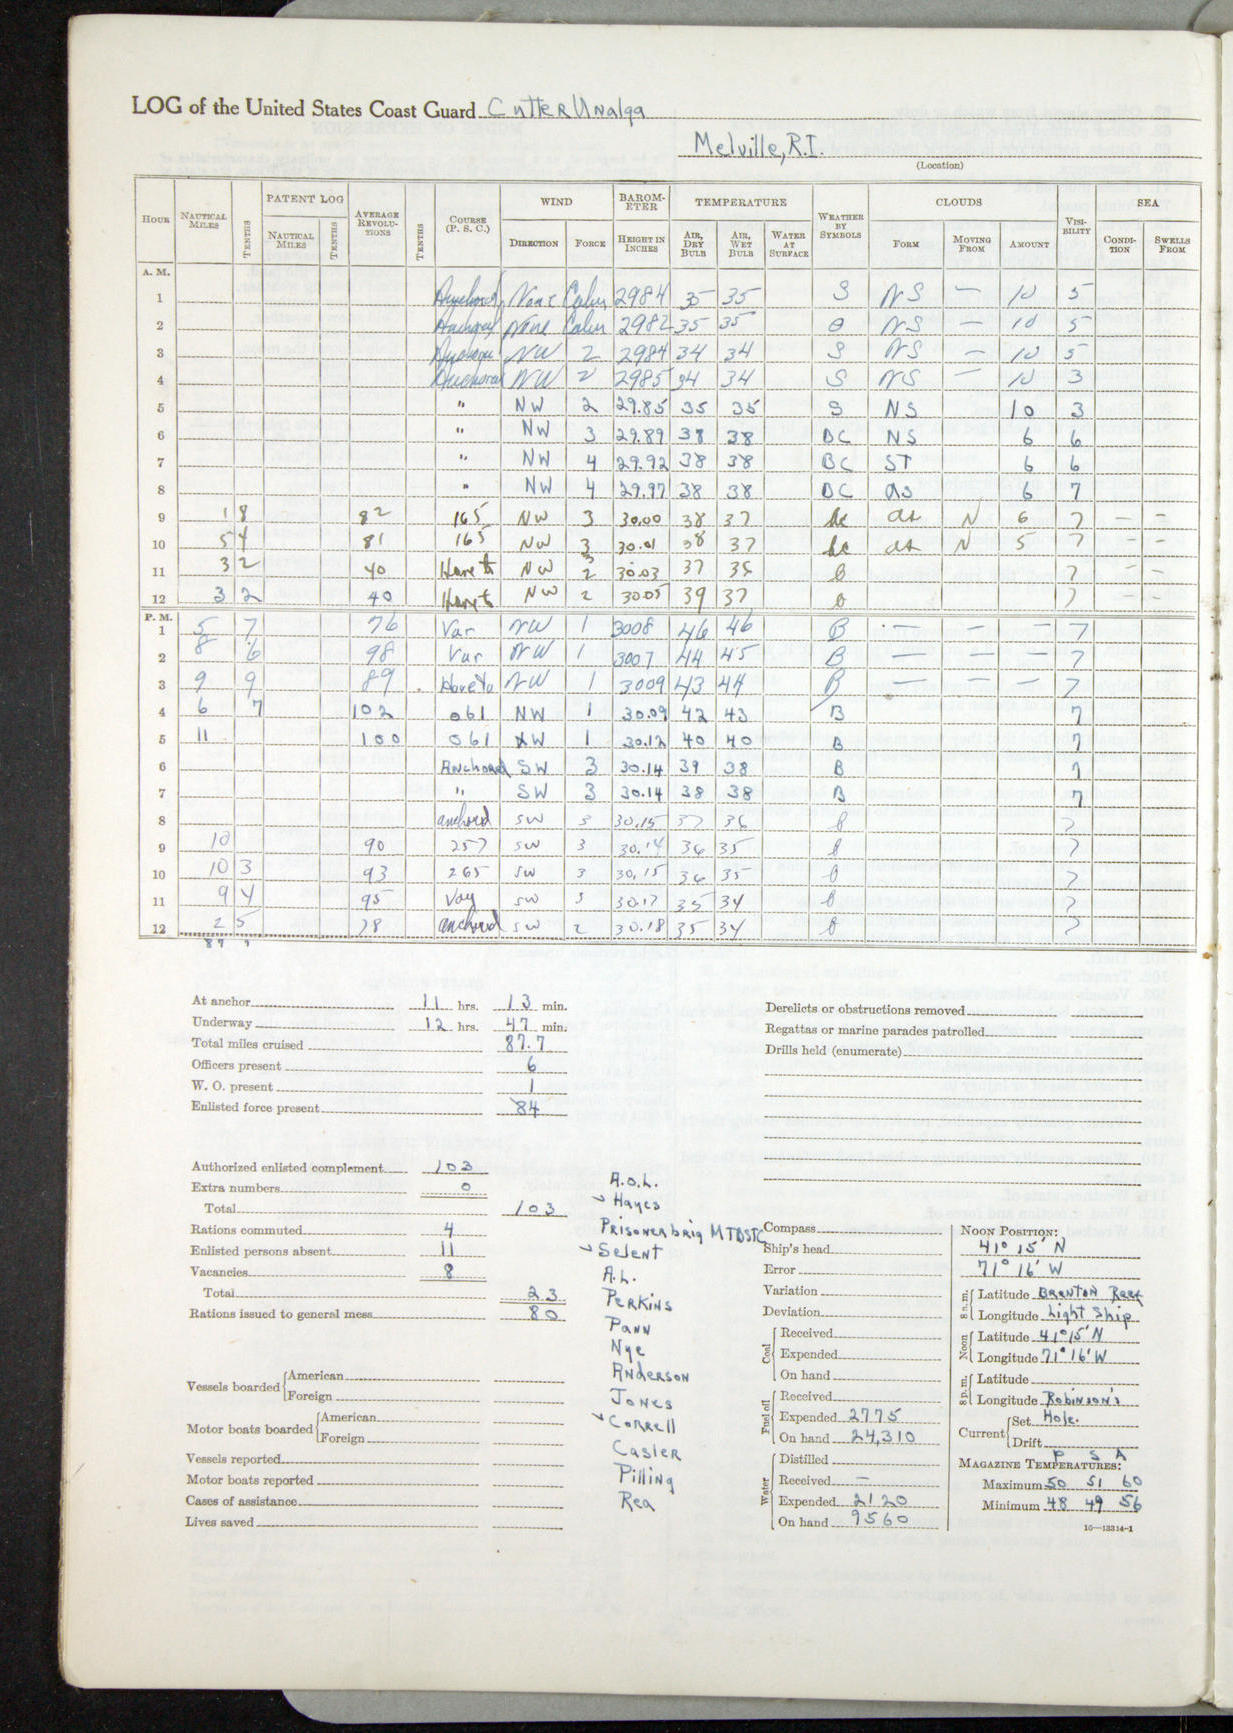 LOG of the United States Coast Guard Cutter Unalga
Melville, R.I.
(Location)
HOUR NAUTICAL MILES TENTHS PATENT LOG NAUTICAL MILES TENTHS AVERAGE REVOLUTIONS TENTHS COURSE (P. S. C.) WIND DIRECTION FORCE BAROMETER HEIGHT IN INCHES TEMPERATURE AIR, DRY BULB AIR, WET BULB WATER AT SURFACE WEATHER BY SYMBOLS CLOUDS FORM MOVING FROM AMOUNT VISIBILITY SEA CONDITION SWELLS FROM
A. M.
1 Anchored None Calm 2984 35 35 S NS — 10 5
2 Anchored None Calm 2982 35 35 NS — 10 5
3 Anchored NW 2 2984 34 34 S NS — 10 5
4 Anchored NW 2 2985 34 34 S NS — 10 3
5 " NW 2 29.85 35 35 S NS 10 3
6 " NW 3 29.89 38 38 BC NS 6 6
7 " NW 4 29.92 38 38 BC ST 6 6
8 " NW 4 29.97 38 38 BC as 6 7
9 1 8 82 165 NW 3 30.00 38 37 bc as N 6 7 — —
10 5 4 81 165 NW 3 30.01 38 37 bc as N 5 7 — —
11 3 2 40 Hove to NW 2 30.03 37 35 b 7 — —
12 3 2 40 Hove to NW 2 30.05 39 37 b 7 — —
P. M.
1 5 7 76 Var NW 1 3008 46 46 B — — — 7
2 8 6 98 Var NW 1 3007 44 45 B — — — 7
3 9 9 89 Hove to NW 1 3009 43 44 B — — — 7
4 6 7 102 061 NW 1 30.09 42 43 B 7
5 11 100 061 NW 1 30.12 40 40 B 7
6 Anchored SW 3 30.14 39 38 B 7
7 " SW 3 30.14 38 38 B 7
8 anchored SW 3 30.15 37 36 b 7
9 10 90 257 SW 3 30.14 36 35 b 7
10 10 3 93 265 SW 3 30.15 36 35 b 7
11 9 4 95 Var SW 3 30.17 35 34 b 7
12 2 5 78 anchored SW 2 30.18 35 34 b 7
87 7
At anchor 11 hrs. 13 min.
Underway 12 hrs. 47 min.
Total miles cruised 87.7
Officers present 6
W. O. present 1
Enlisted force present 84
Derelicts or obstructions removed
Regattas or marine parades patrolled
Drills held (enumerate)
Authorized enlisted complement 103
Extra numbers 0
Total 103
Rations commuted 4
Enlisted persons absent 11
Vacancies 8
Total 23
Rations issued to general mess 80
Vessels boarded American
Foreign
Motor boats boarded American
Foreign
Vessels reported
Motor boats reported
Cases of assistance
Lives saved
A.O.L.
Hayes
Prisoner brig MTBSTC
Selent
A.L.
Perkins
Pann
Nye
Anderson
Jones
Correll
Casler
Pilling
Rea
Compass
Ship's head
Error
Variation
Deviation
Coal Received
Expended
On hand
Fuel oil Received
Expended 2775
On hand 24,310
Water Distilled
Received —
Expended 2120
On hand 9560
NOON POSITION:
41° 15' N
71° 16' W
8 a. m. Latitude Brenton Reef
Longitude Light Ship
Noon Latitude 41°15'N
Longitude 71°16'W
8 p. m. Latitude
Longitude Robinson's
Current Set Hole.
Drift
P S A
MAGAZINE TEMPERATURES:
Maximum 50 51 60
Minimum 48 49 56
16—13314-1